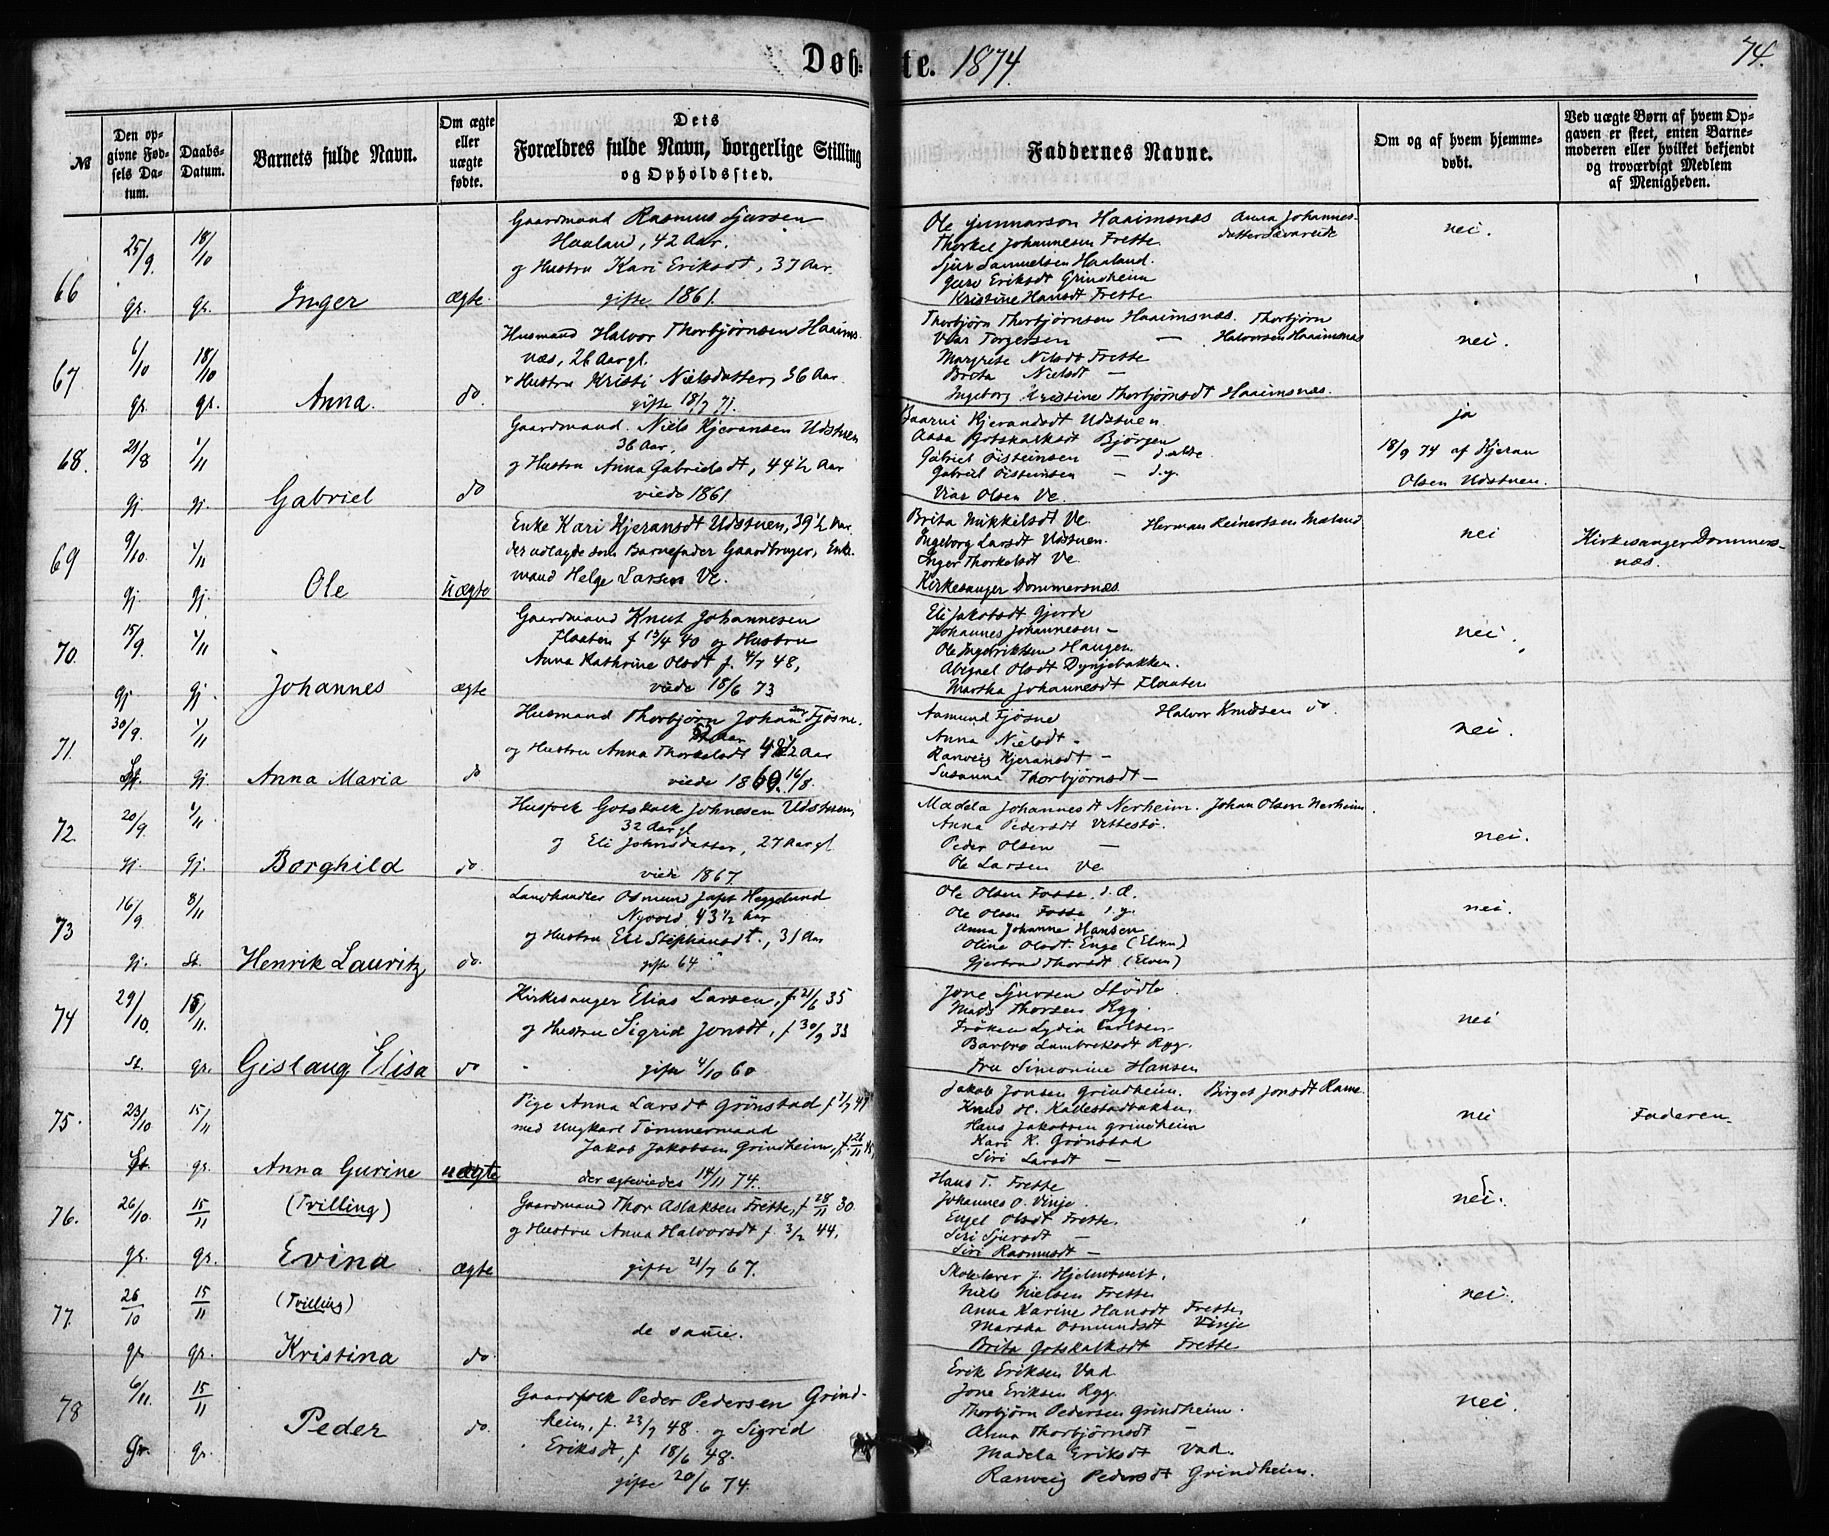 Døb- te. 1874
74.
№
Den opgivne Fødsels Datum.
Daabs-Datum.
Barnets fulde Navn.
Om ægte eller uægte fødte.
Dets
Forældres fulde Navn, borgerlige Stilling
og Opholdssted.
Faddernes Navne.
Om og af hvem hjemmedøbt.
Ved uægte Børn af hvem Opgaven er skeet, enten Barnemoderen eller hvilket bekjendt og troværdigt Medlem af Menigheden.
66
25/9
gr.
18/10
gr.
Inger
ægte.
Gaardmand Rasmus Sjursen
Haaland, 42 Aar.
og Hustru Kari Eriksdt, 37 Aar.
gifte 1861.
Ole Gunnarson Haaimsnæs Anna Johannes-
Thorkel Johannesen Frette datter Sævareide
Sjur Samuelsen Haaland.
Guro Eriksdt Grindheim
Kristine Hansdt Frette
nei.
67
6/10
gr.
18/10
gr.
Anna.
do.
Husmand Halvor Thorbjørnsen Haaims-
næs, 26 Aar gl.
Hustru Kristi Nielsdatter, 36 Aar.
gifte 18/7 71.
Thorbjørn Thorbjørnsen Haaimsnæs. Thorbjørn
Viar Torgersen — Halvorsen Haaimsnæs
Margrete Nilsdt Frette
Brita Nielsdt —
Ingeborg Kristine Thorbjørnsdt Haaimsnæs.
nei.
68.
21/8
gj.
1/11
gj.
Gabriel
do
Gaardmand. Niels Kjeransen Udstuen
36 Aar,
og Hustru Anna Gabrielsdt, 44½ Aar
viede 1861.
Baarni Kjerandsdt Udstuen.
Aasa Gotskalksdt Bjørgen
Gabriel Øisteinsen — d. ælde.
Gabriel Øisteinsen — d. y.
Viar Olsen Ve.
ja
18/9 74 af Kjeran
Olsen Udstuen.
69
9/10.
gj.
1/11
gj.
Ole
Uægte
Enke Kari Kjeransdt Udstuen, 39½ Aar
der udlagde som Barnefader Gaardbruger, Enke-
mand Helge Larsen Ve.
Brita Mikkelsdt Ve. Herman Reinertsen Mæland
Ingeborg Larsdt Udstuen.
Inger Thorkelsdt Ve
Kirkesanger Dommersnæs
nei
Kirkesanger Dommers-
næs.
70.
15/9.
gj
1/11
gj.
Johannes
ægte
Gaardmand Knut Johannesen
Flaaten f 13/4 40 og Hustru
Anna Kathrine Olsdt f. 4/7 48,
viede 18/6 73
Eli Jakobsdt Gjerde
Johannes Johannesen —
Ole Ingbrigtsen Haugen.
Abigael Olsdt Dynjebakken.
Martha Johannesdt Flaaten
nei
71.
30/9.
1/11
gj.
Anna Maria
do
Husmand Thorbjørn Johansen Fjøsne.
52 Aar
og Hustru Anna Thorkelsdt 48½ Aar
viede 1860. 16/8.
Aamund Fjøsne Halvor Knudsen do.
Anna Nielsdt —
Ranveig Kjeransdt —
Susanna Thorbjørnsdt —
nei.
72.
20/9.
gj.
1/11
gj.
Borghild
do.
Husfolk Gotskalk Johnesen Udstuen,
32 Aar gl
og Eli Johnsdatter, 27 Aar gl
viede 1867.
Madela Johannesdt Nerheim. Johan Olsen Nerheim.
Anna Pedersdt Vettestø.
Peder Olsen —
Ole Larsen Ve.
nei.
73
16/9
gj.
8/11
st.
Henrik Lauritz
do.
Landhandler Osmund Heggelund
Nyvold, 43½ Aar
og Hustru Eli Stephansdt., 31 Aar
gifte 64
Ole Olsen Fosse. d. Æ.
Ole Olsen Fosse d. y.
Anna Johanne Hansen
Oline Olsdt. Enge (Elven)
Gjertrud Thorsdt (Elven)
nei.
74
29/10.
st.
15/11.
gr.
Gislaug Elisa
do
Kirkesanger Elias Larsen, f. 21/6 35
og Hustru Sigrid Jonsdt, f 30/9 33
gifte 4/10 60
Jone Sjursen Stødle
Mads Thorsen Ryg.
Frøken Lydia Carlsen
Barbro Lambrektsdt Ryg.
Fru Simonine Hansen
nei
75.
23/10
St.
15/11
gr.
Anna Gurine
uægte
Pige Anna Larsdt Grønstad f 7/7 49
med Ungkarl Tømmermand
Jakob Jakobsen Grindheim, f 26/11 48,
der ægteviedes 14/11 74.
Jakob Jonsen Grindheim. Birget Jonsdt Rame
Knud H. Kallestadbakken
Hans Jakobsen Grindheim
Kari K. Grønstad
Siri Larsdt —
nei
Faderen
76.
26/10.
gr.
15/11
gr.
(Tvilling)
Evina
ægte
Gaardmand Thor Aslaksen Frette, f 28/11 30.
og Hustru Anna Halvorsdt f. 3/2 44,
gifte 21/7 67.
Hans T. Frette
Johannes O. Vinje.
Engel Olsdt Frette.
Siri Sjursdt —
Siri Rasmusdt —
nei.
77.
26/10
gr.
15/11
gr.
(Tvilling)
Kristina
do.
de samme.
Skolelærer J. Hjelmtveit.
Niels Nielsen Frette
Anna Karine Hansdt Frette
Martha Osmundsdt Vinje
Brita Gotskalksdt Frette
nei.
78
6/11.
Gr.
15/11
gr.
Peder
do.
Gaardfolk Peder Pedersen Grind-
heim, f. 23/7 48 og Sigrid
Eriksdt, f 18/6 48.
gifte 20/6 74.
Erik Eriksen Vad
Jone Eriksen Ryg.
Thorbjørn Pedersen Grindheim.
Anna Thorbjørnsdt —
Madela Eriksdt Vad.
Ranveig Pedersdt Grindheim.
nei.